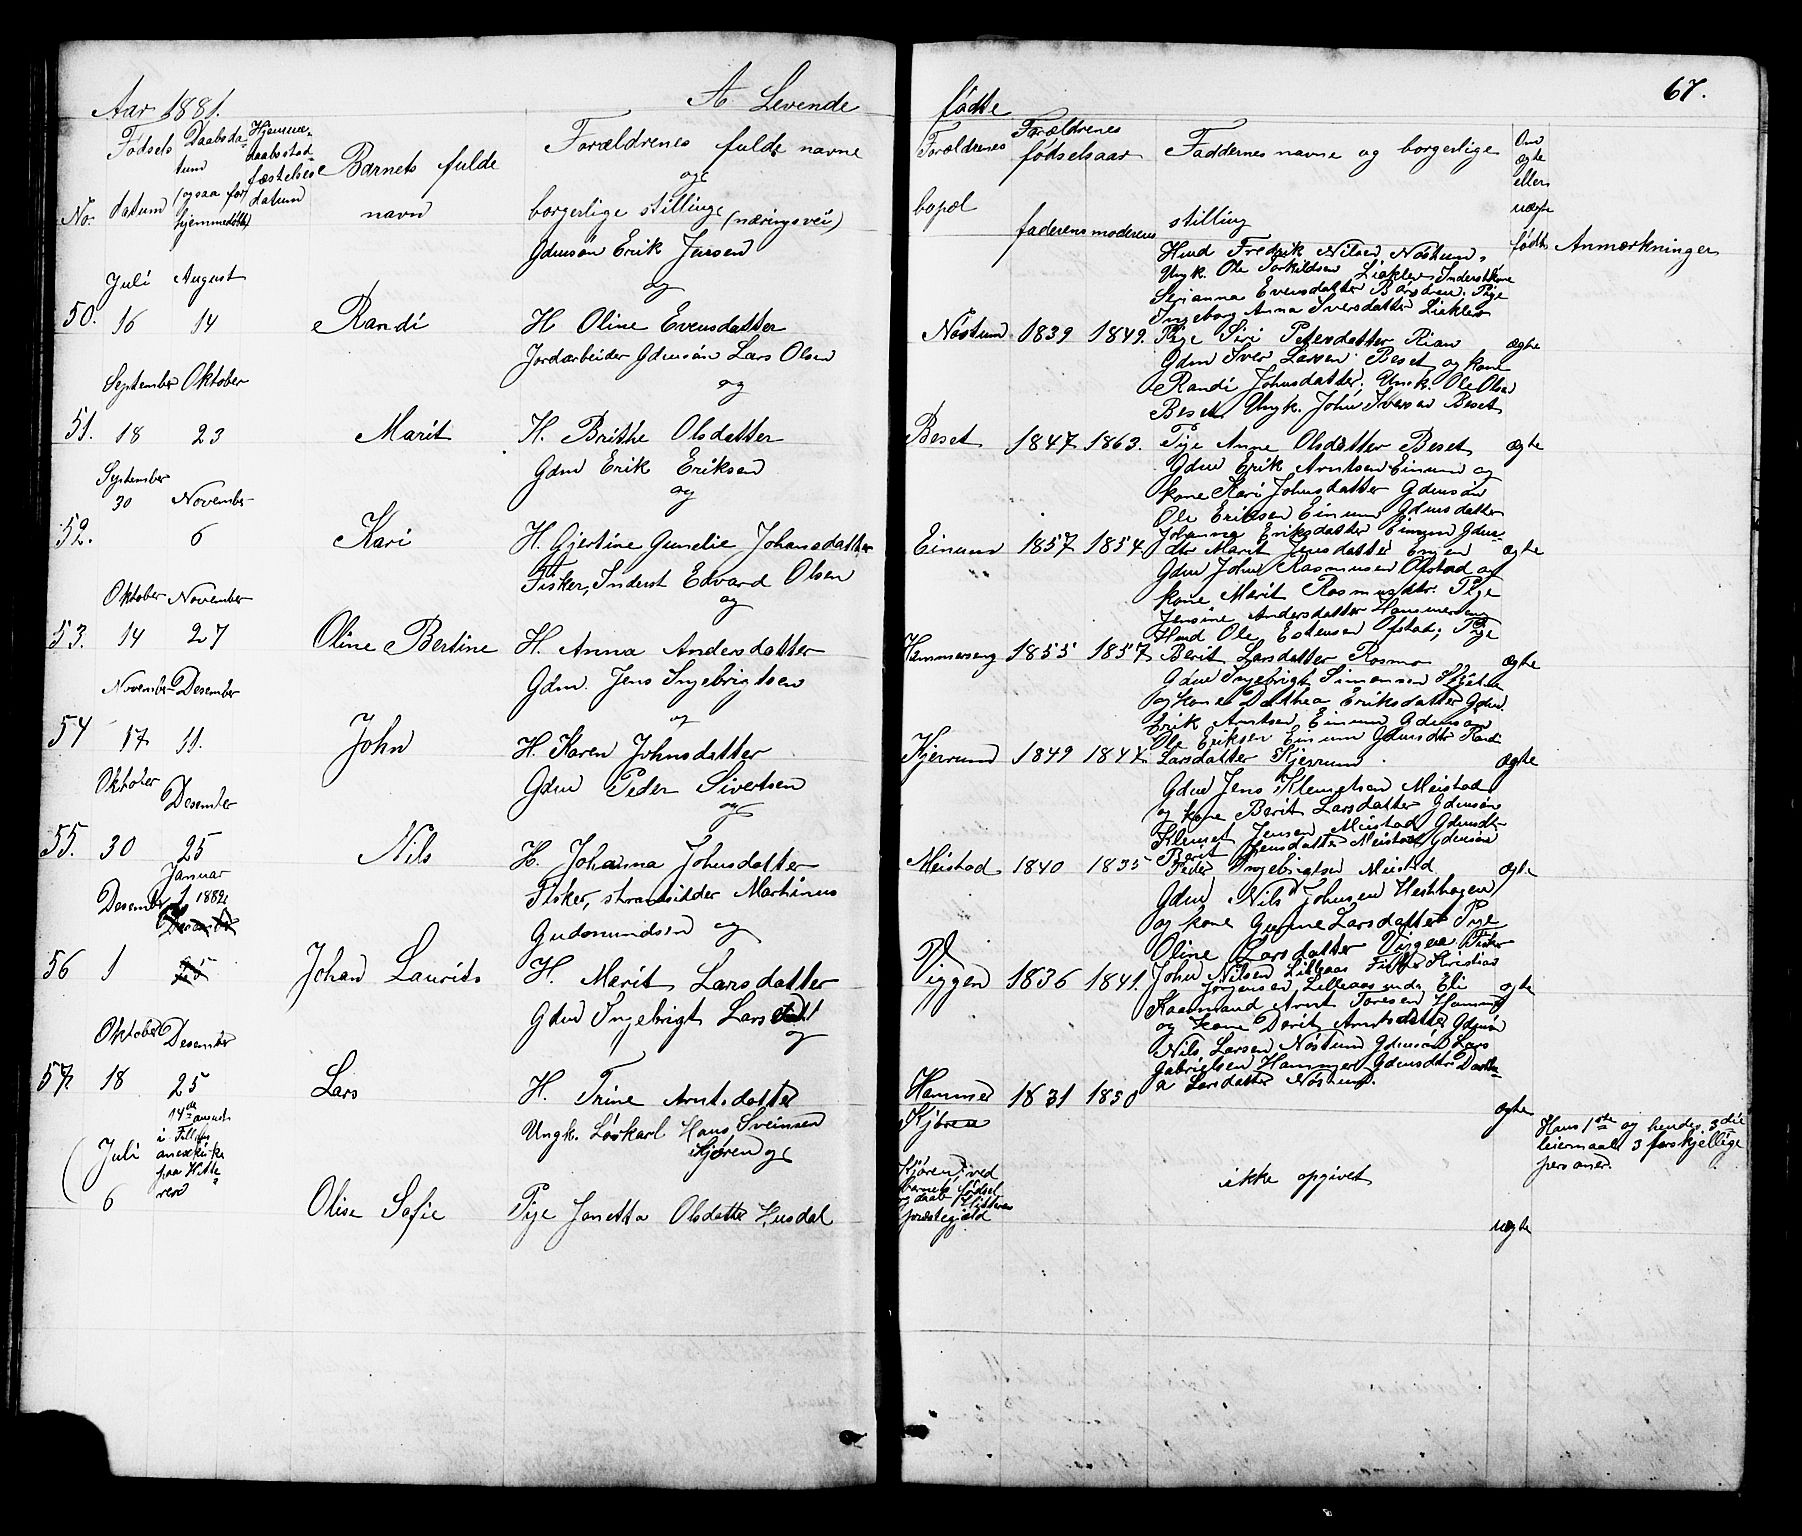 67.
Aar 1881. A. Levende fødte
No.
Fødsels datum
Daabsdatum (ogsaa for hjemmedøbte)
Hjemmedaabsstadfæstelsesdatum
Barnets fulde navn
Forældrenes fulde navne
og
borgerlige stilling (næringsvei)
Forældrenes bopæl
Forældrenes fødselsaar
faderens moderens
Faddernes navne og borgerlige stilling
Om ægte eller uægte født
Anmærkninger
Juli August
50. 16 14 Randi
Gdmsøn Erik Jensen
og
H. Oline Evensdatter
Nöstum 1839 1849. ægte
Hmd Fredrik Nilsen Nöstum,
Ungk. Ole Torkildsen Liaklev Inderstkone
Serianna Evensdatter Pige
Ingeborg Anna Iversdatter Liaklev
Pige Siri Petersdatter Rian
September Oktober
51. 18 23 Marit
Jordarbeider Gdmsön Lars Olsen
og
H. Brithe Olsdatter
Beset 1847 1863. ægte
Gdm Iver Larsen Beset og kone
Randi Johnsdatter, Ungk. Ole Olsen
Beset Ungk. John Iversen Beset
Pige Anne Olsdatter Beset
September November
52. 30 6 Kari
Gdm Erik Eriksen
og
H. Gjertine Gunelie Johansdatter
Einum 1857 1854. ægte
Gdm Erik Arntsen Einum og
kone Kari Johnsdatter Gdmsön
Ole Eriksen Einum Gdmsdatter
Johanna Eriksdatter Einum Gdms
dtr Marit Jensdatter Engen
Oktober November
53. 14 27 Oline Bertine
Fisker, Inderst Edvard Olsen
og
H. Anna Andersdatter
Hammerseng 1855 1857 ægte
Gdm John Rasmussen Ofstad og
kone Marit Rasmusdtr. Pige
Jensine Andersdatter Hammerseng
Hmd Ole Estensen Ofstad; Pige
Berit Larsdatter Rosmo
November Desember
54 17. 11. John
Gdm. Jens Ingebrigtsen
og
H. Karen Johnsdatter
Kjerrum 1849 1847. ægte
Gdm Ingebrigt Simonsen
og kone Dorthea Eriksdatter Gdm.
Erik Arntsen Einum Gdmsön
Ole Eriksen Einum Gdmsdtr Randi
Larsdatter Kjerrum
Oktober Desember
55. 30 25 Nils
Gdm Peder Sivertsen
og
H. Johanna Johnsdatter
Meistad 1840 1835 ægte
Gdm Jens Klemetsen Meistad
og kone Berit Larsdatter Gdmsön
Klemet Jensen Meistad Gdmsdt.
Berit Jensdatter Meistad Gdmsön
Peder Ingebrigtsen Meistad
Desember Januar
56 1 1 1882. Johan Laurits
Fisker, strandsidder Martinus
Gudmundsen og
H. Marit Larsdatter
Viggen 1836 1841. ægte
Gdm Nils Johnsen Hesthagen
og kone Gunne Larsdatter Pige
Oline Larsdatter Viggen Fisker
John Nilsen Lilleaas Kristian
Jörgensen Lilleaas Eli
Oktober Desember
57. 18 25 Lars
Gdm Ingebrigt Larsen
og
H. Trine Arntsdatter
Hammer 1831 1830 ægte
Kaarmand Arnt Toresen Hammer
og kone Berit Arntsdatter Gdmsön
Nils Larsen Nöstum Gdmsön Lars
Gabrielsen Hammer Gdmsdtr Dorthe
a Larsdatter Nöstum.
Juli
6
14de august
i Fillans
anexkirke
paa Hitte
ren
Oline Sofie
Ungk. Löskarl Hans Sveinsen
Kjören og
Pige Janetta Olsdatter Husdal
Kjören
Kjören, ved
barnets födsel
og daab Hitterens
præstegjæld
ikke opgivet
uægte
Hans 1ste og hendes 3die
leiermaal 3 forskjellige
personer.